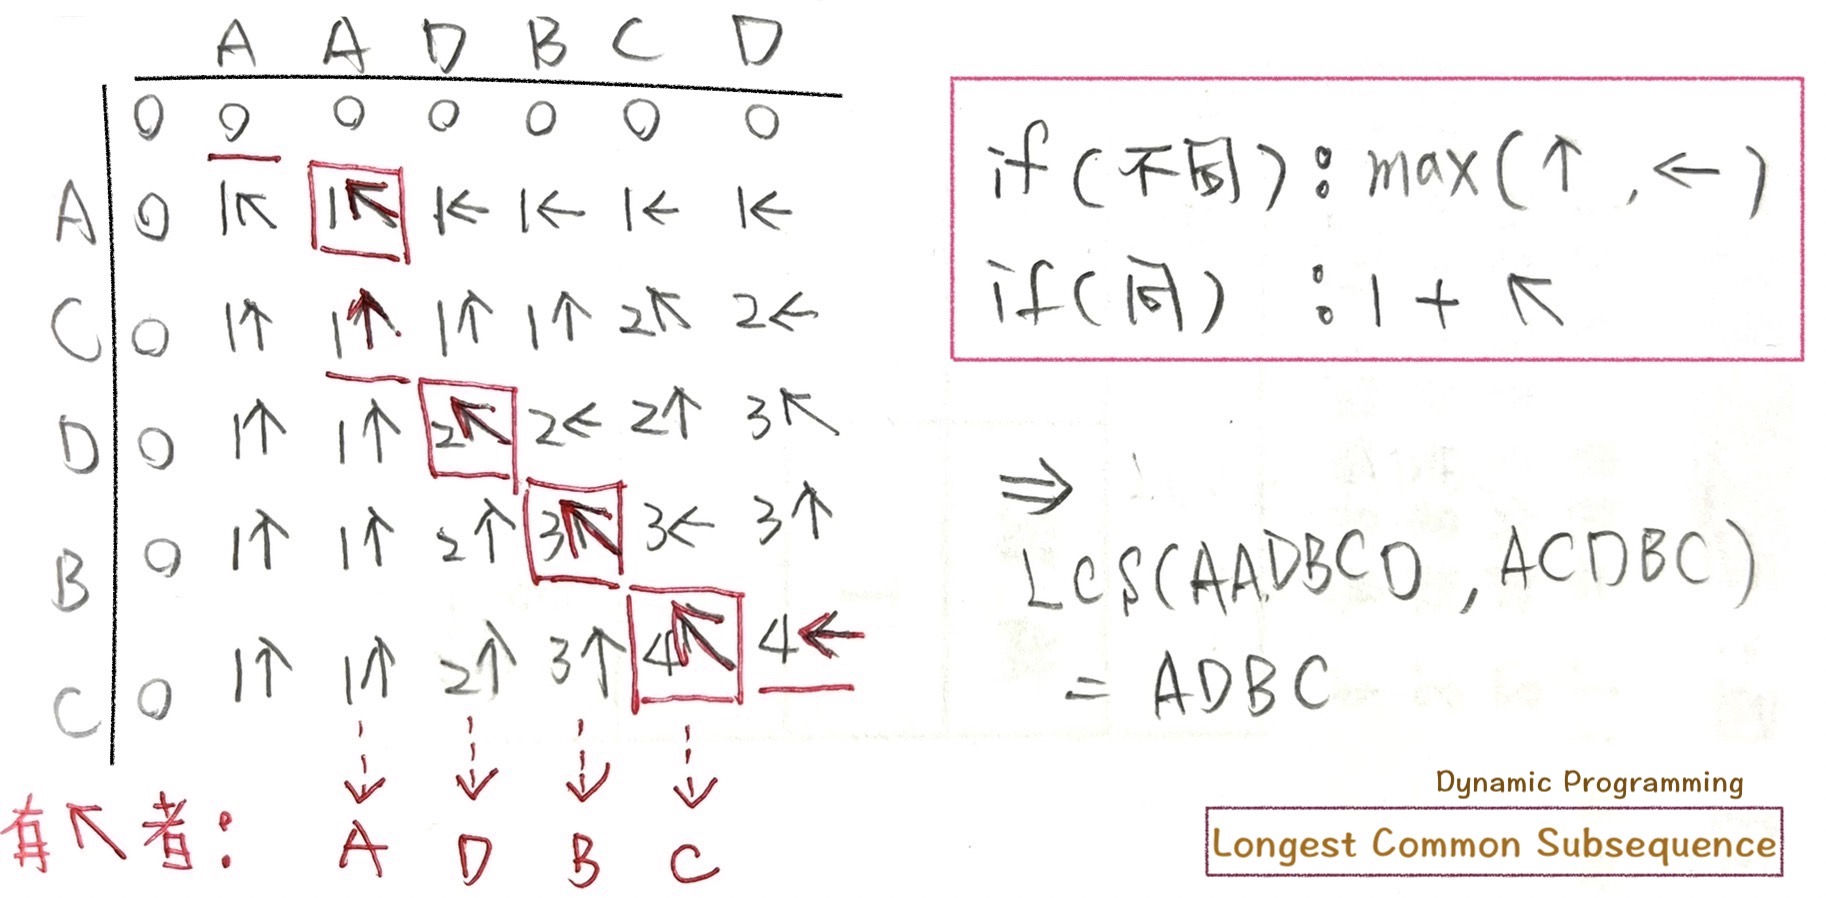 A A D B C D
0 0 0 0 0 0 0
A 0 1↖ 1↖ 1← 1← 1← 1←
C 0 1↑ 1↑ 1↑ 1↑ 2↖ 2←
D 0 1↑ 1↑ 2↖ 2← 2↑ 3↖
B 0 1↑ 1↑ 2↑ 3↖ 3← 3↑
C 0 1↑ 1↑ 2↑ 3↑ 4↖ 4←
有↖者: A D B C
if(不同):max(↑,←)
if(同) :1+↖
⇒
LCS(AADBCD,ACDBC)
= ADBC
Dynamic Programming
Longest Common Subsequence